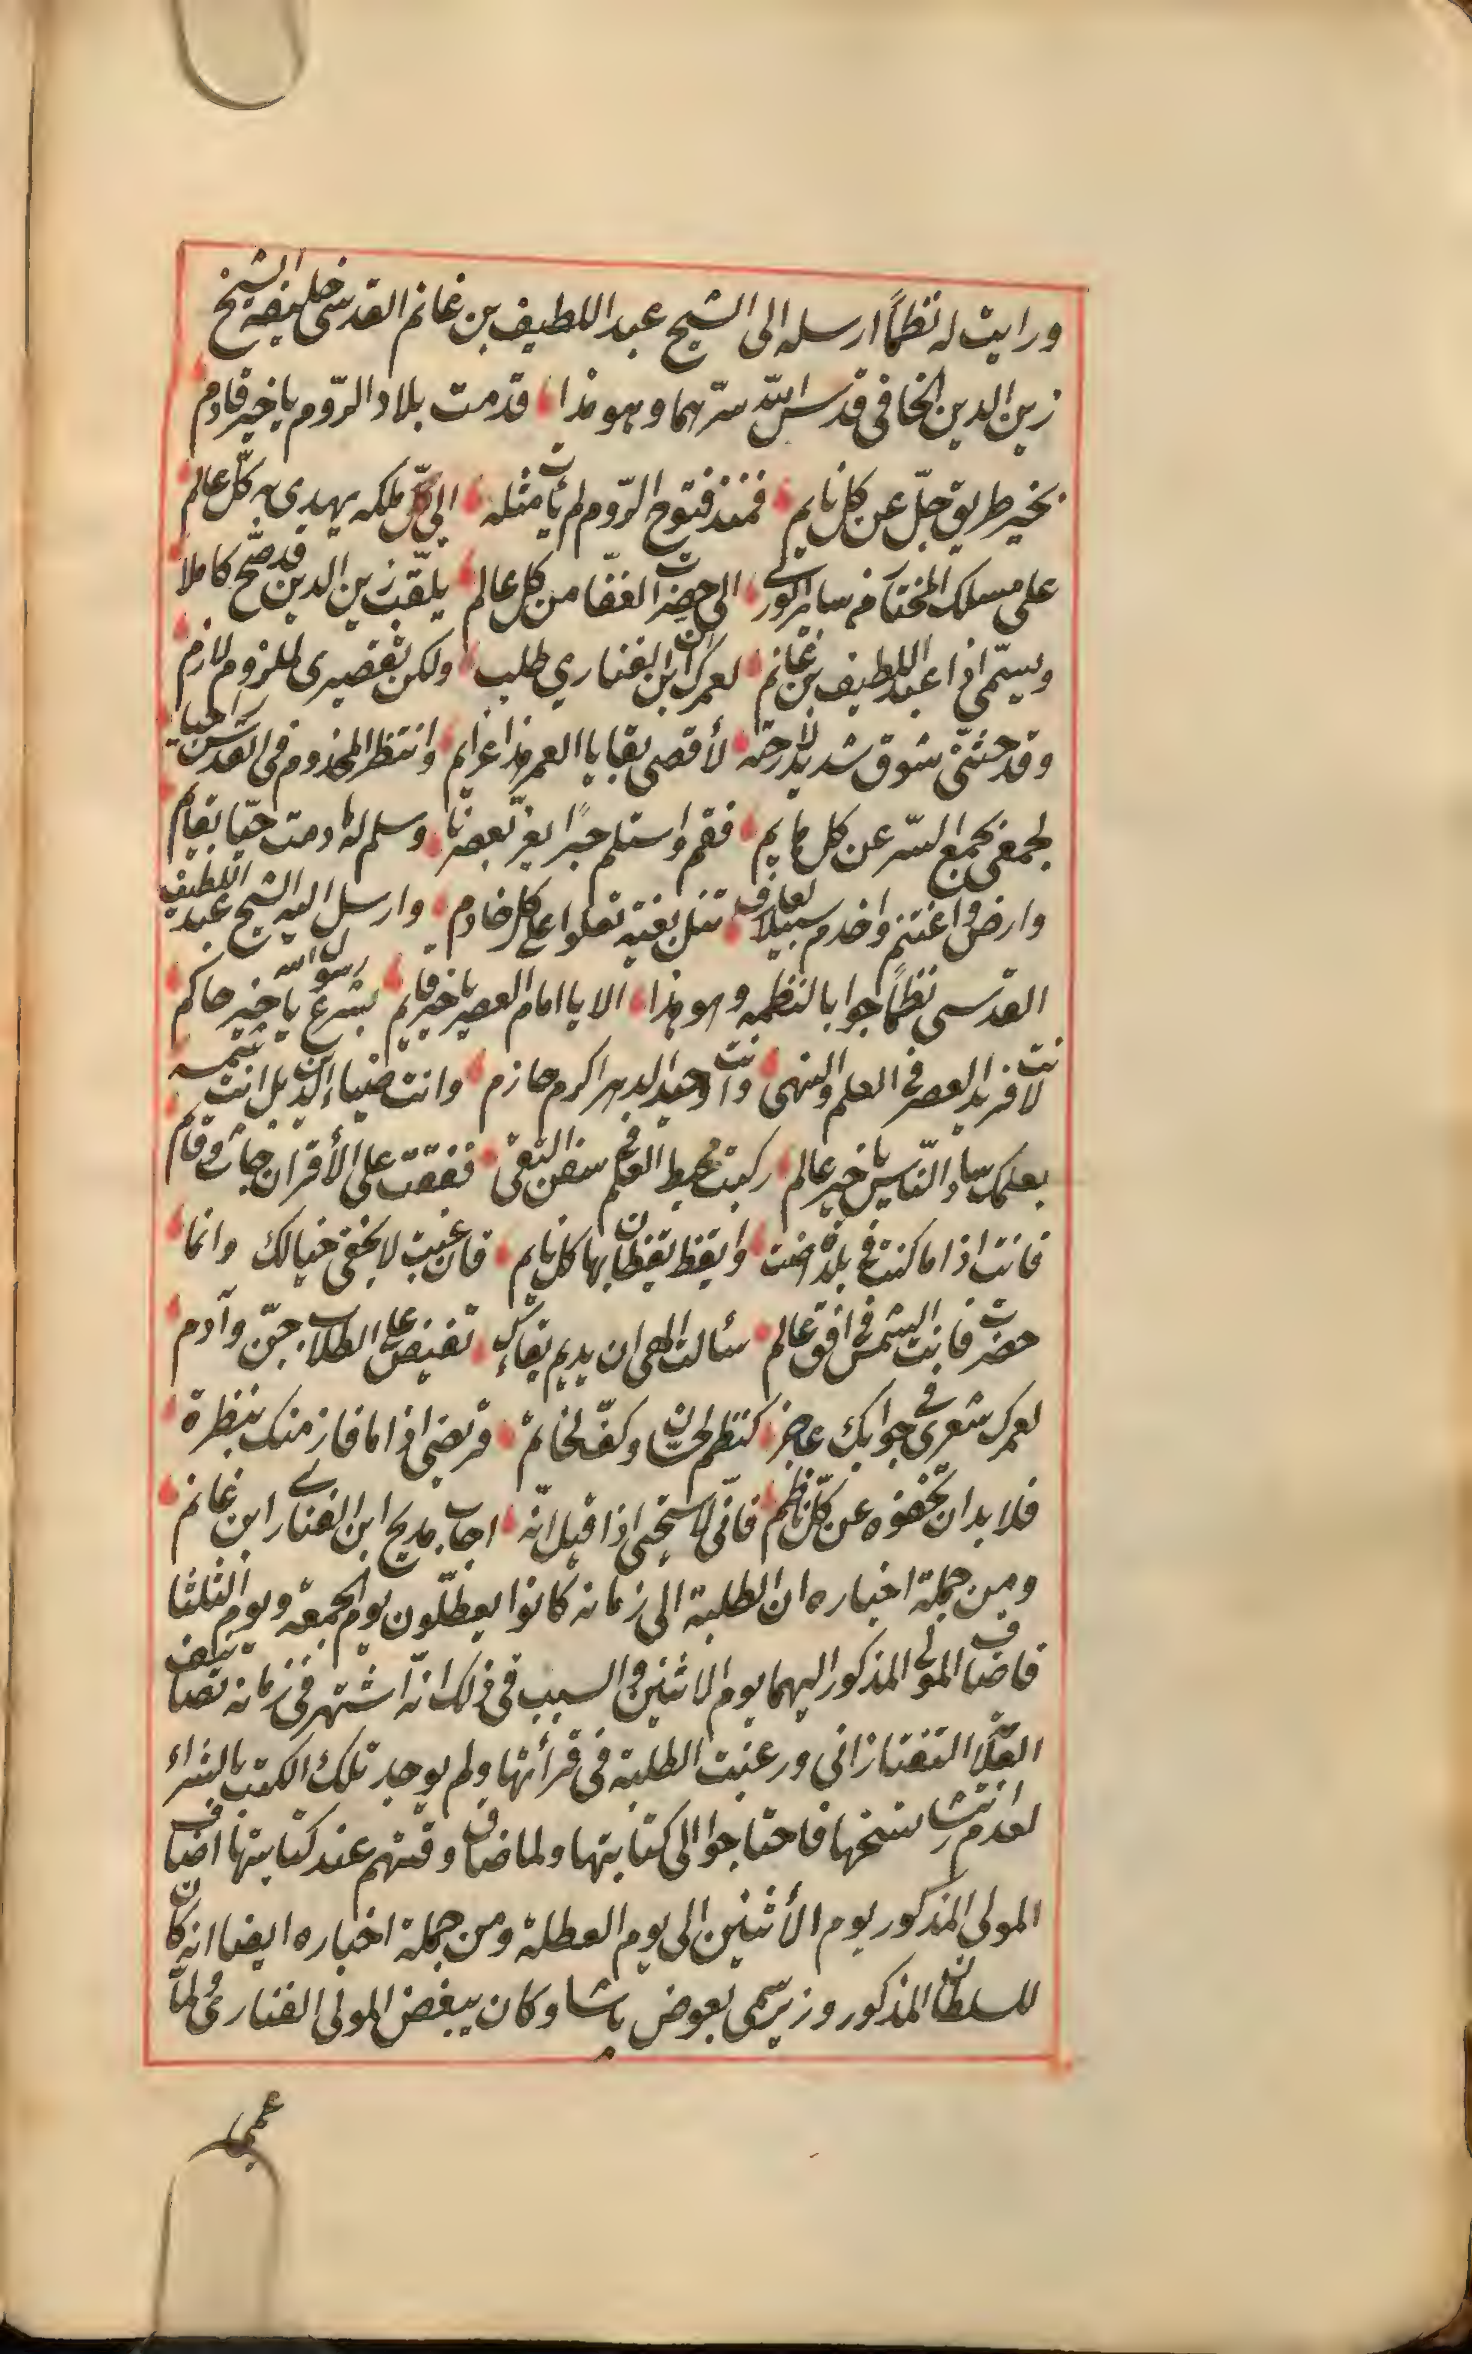 ورايت له نظمًا ارسله الى الشيخ عبد اللطيف بن غانم القدسى خليفة الشيخ
زين الدين الخافى قدس الله سرّهما وهو هذا قدمت بلاد الرّوم يا خير قادم
بخير طريق جلّ عن كل نايم فمنذ فتوح الرّوم لم يأت مثله الى ملكه يهدى به كلّ عالم
على مسلك المختار من ساير الورى الى حضرة الغفار من كل عالم يلقّب زين الدين قد صحّ كاملا
ويسمّى اذا عبد اللطيف بن غانم لعمرك ان ابن الفنارى طلب ولكن تقصيرى لملزوم لازم
وقد حثنى شوق شديد لارحه لأقصى بقايا العمر هذا عزايم وانتظر المخدوم فى القدس راحيا
لجمعى بجمع السّر عن كل هايم فقم واستلم حبرًا يعزّ بعصرنا وسلم له ما دمت حيّا بقايم
وارض واغتنم واخدم سبيلا لعارف تنل بغية تعلوا على كل خادم وارسل اليه الشيخ عبد اللطيف
القدسى نظمًا جوابا لنظمه وهو هذا الا يا امام العصر يا خير قايم بشرع رسول الله يا خير حاكم
لانت فريد العصر فى العلم والنهى وانت وحيد الدهر اكرم حازم وانت ضياء الدين بل انت شمسه
بعلمك ساد النّاس يا خير عالم ركبت محيط العلم فى سفن التقى ففقت على الأقران جمات وقايم
فانت اذا ما كنت فى بلدة اضت وايقظ يقظان بها كل نايم فان غبت لا يخفى خيالك وانما
حضرت فانت الشمس فى افق عالم سألت الهى ان يديم بقاءكم تفيض على الطلاب جنّ وآدم
لعمرك شعرى فى جوابك عاجز كنظم لحسان وكفّ لخاتم قريضى اذا ما فاز منك بنظرة
فلا بد ان تخفوه عن كلّ ناظم فانّى لاستحيى اذا قيل انّه اجاب مديح ابن الفنارى ابن غانم
ومن جملة اخباره ان الطلبة الى زمانه كانوا يعطّلون يوم الجمعة ويوم الثلثا
فاضاف المولى المذكور اليهما يوم الاثنين والسبب فى ذلك انّه اشتهر فى زمانه تصانيف
العلّامة التفتازانى ورغبت الطلبة فى قرأتها ولم يوجد تلك الكتب بالشراء
لعدم انتشار نسخها فاحتاجوا الى كتابتها ولما ضاق وقتهم عند كتابتها اضاف
المولى المذكور يوم الأثنين الى يوم العطلة ومن جملة اخباره ايضا انه كان
للسلطان المذكور وزير يسمّى بعوض پاشا وكان يبغض المولى الفنارى ولما
عمى